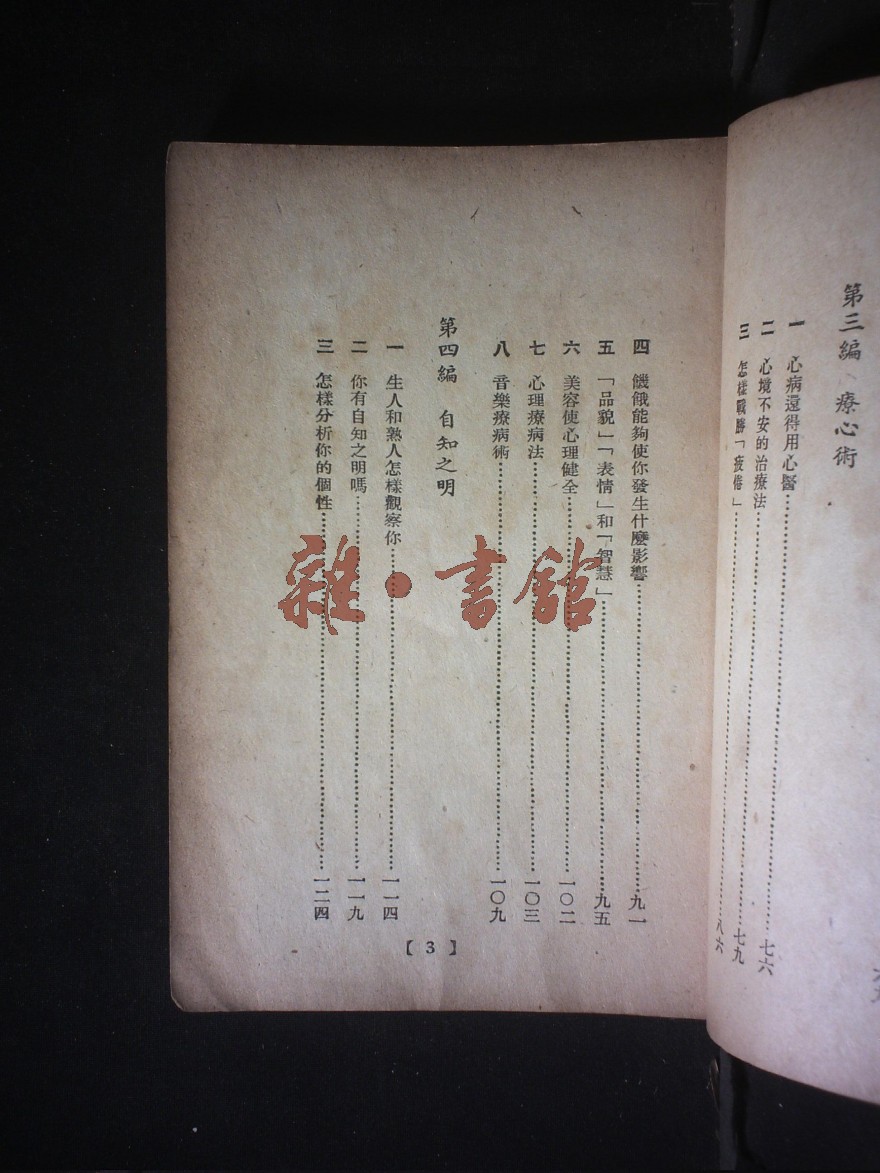 第三編 療心術
一 心病還得用心醫……七六
二 心境不安的治療法……七九
三 怎樣戰勝「疲倦」……八六
四 饑餓能夠使你發生什麼影響……九一
五 「品貌」「表情」和「智慧」……九五
六 美容使心理健全……一〇二
七 心理療病法……一〇三
八 音樂療病術……一〇九
第四編 自知之明
一 生人和熟人怎樣觀察你……一一四
二 你有自知之明嗎……一一九
三 怎樣分析你的個性……一二四
【3】
雜·書館